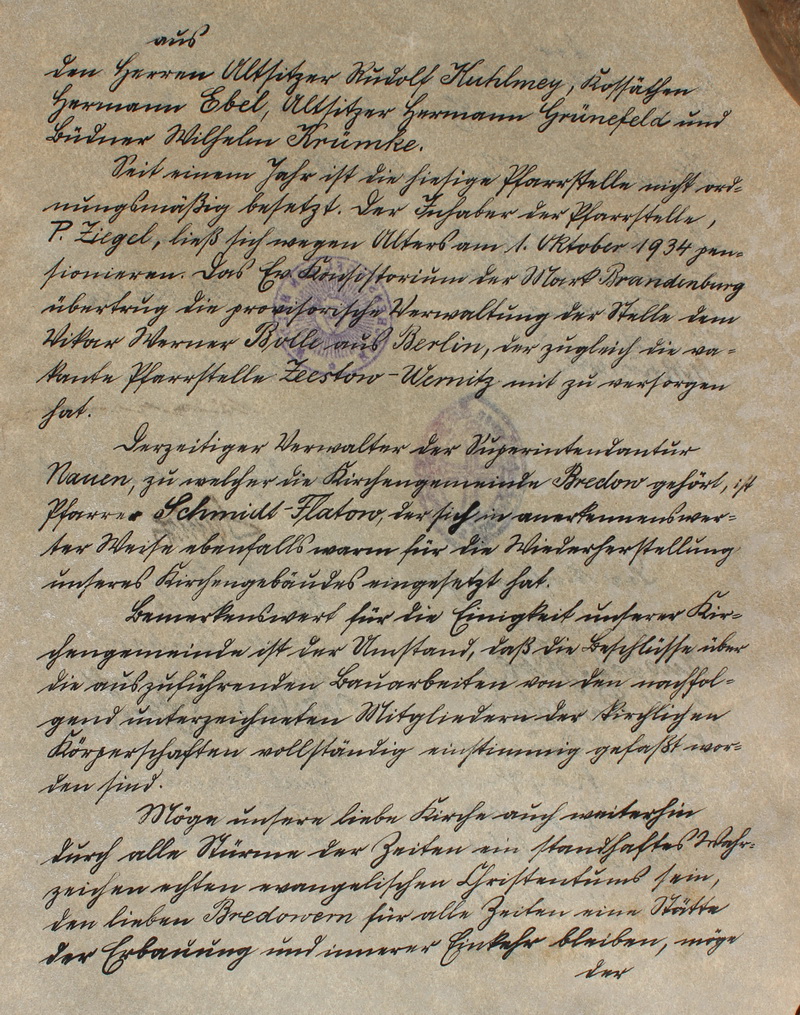 aus
den Herren Altsitzer Rudolf Kuhlmey, Kossäthen
Hermann Ebel, Altsitzer Hermann Grünefeld und
Büdner Wilhelm Krümke.
Seit einem Jahr ist die hiesige Pfarrstelle nicht ord-
nungsmäßig besetzt. Der Inhaber der Pfarrstelle,
P. Ziegel, ließ sich wegen Alters am 1. Oktober 1934 pen-
sionieren. Das Ev. Konsistorium der Mark Brandenburg
übertrug die provisorische Verwaltung der Stelle dem
Vikar Werner Bolle aus Berlin, der zugleich die va-
kante Pfarrstelle Zeestow-Wernitz mit zu versorgen
hat.
Derzeitiger Verwalter der Superintendantur
Nauen, zu welcher die Kirchengemeinde Bredow gehört, ist
Pfarrer Schmidt-Flatow, der sich in anerkennenswer-
ter Weise ebenfalls warm für die Wiederherstellung
unseres Kirchengebäudes eingesetzt hat.
Bemerkenswert für die Einigkeit unserer Kir-
chengemeinde ist der Umstand, daß die Beschlüsse über
die auszuführenden Bauarbeiten von den nachfol-
gend unterzeichneten Mitgliedern der kirchlichen
Körperschaften vollständig einstimmig gefaßt wor-
den sind.
Möge unsere liebe Kirche auch weiterhin
durch alle Stürme der Zeiten ein standhaftes Wahr-
zeichen echten evangelischen Christentums sein,
den lieben Bredowern für alle Zeiten eine Stätte
der Erbauung und innerer Einkehr bleiben, möge
der